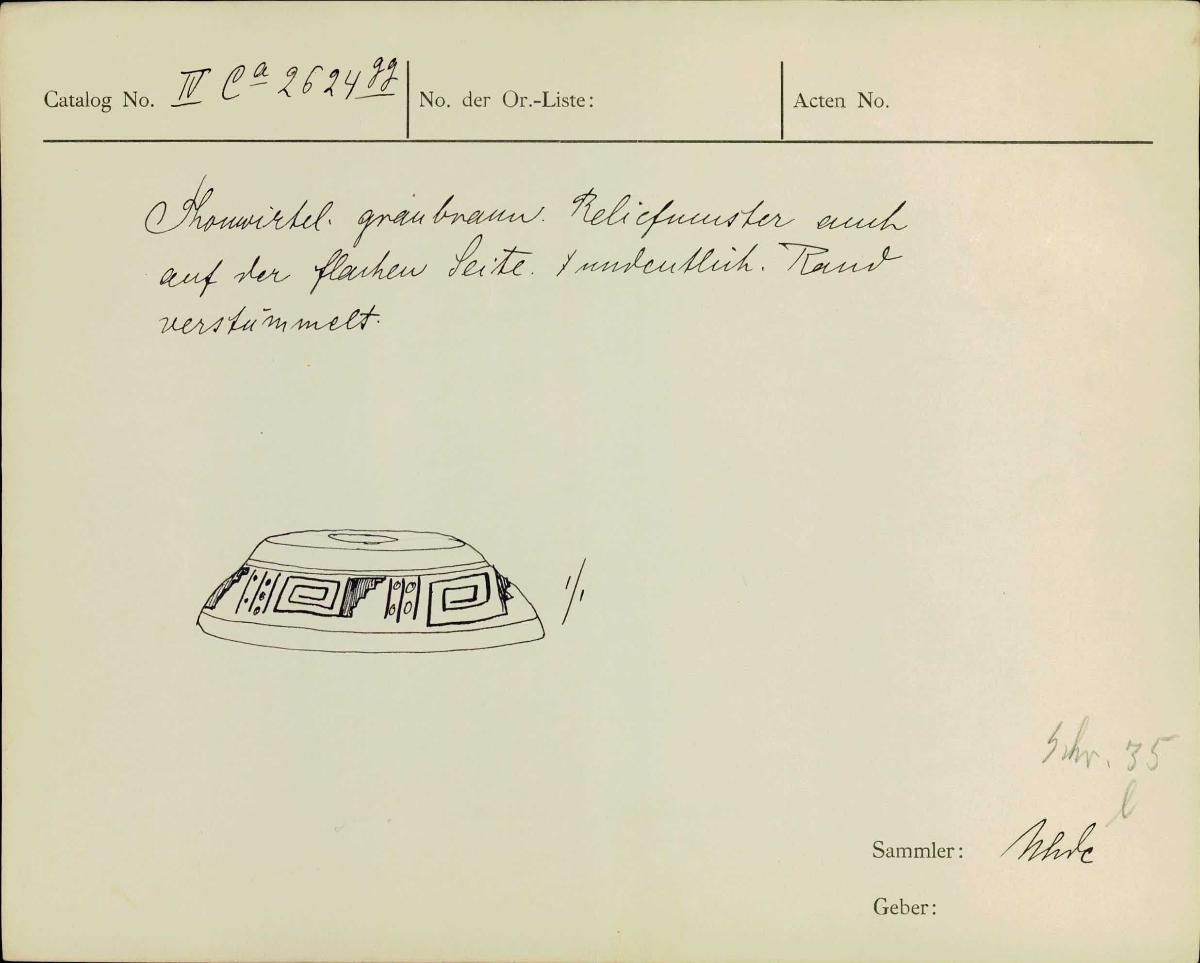 Catalog No. IV Ca 2624 gg No. der Or.-Liste: Acten No.
Thonwirtel. graubraun. Reliefmuster auch
auf der flachen Seite. undeutlich. Rand
verstümmelt.
1/1
Schr. 35
l
Sammler: Uhde
Geber: